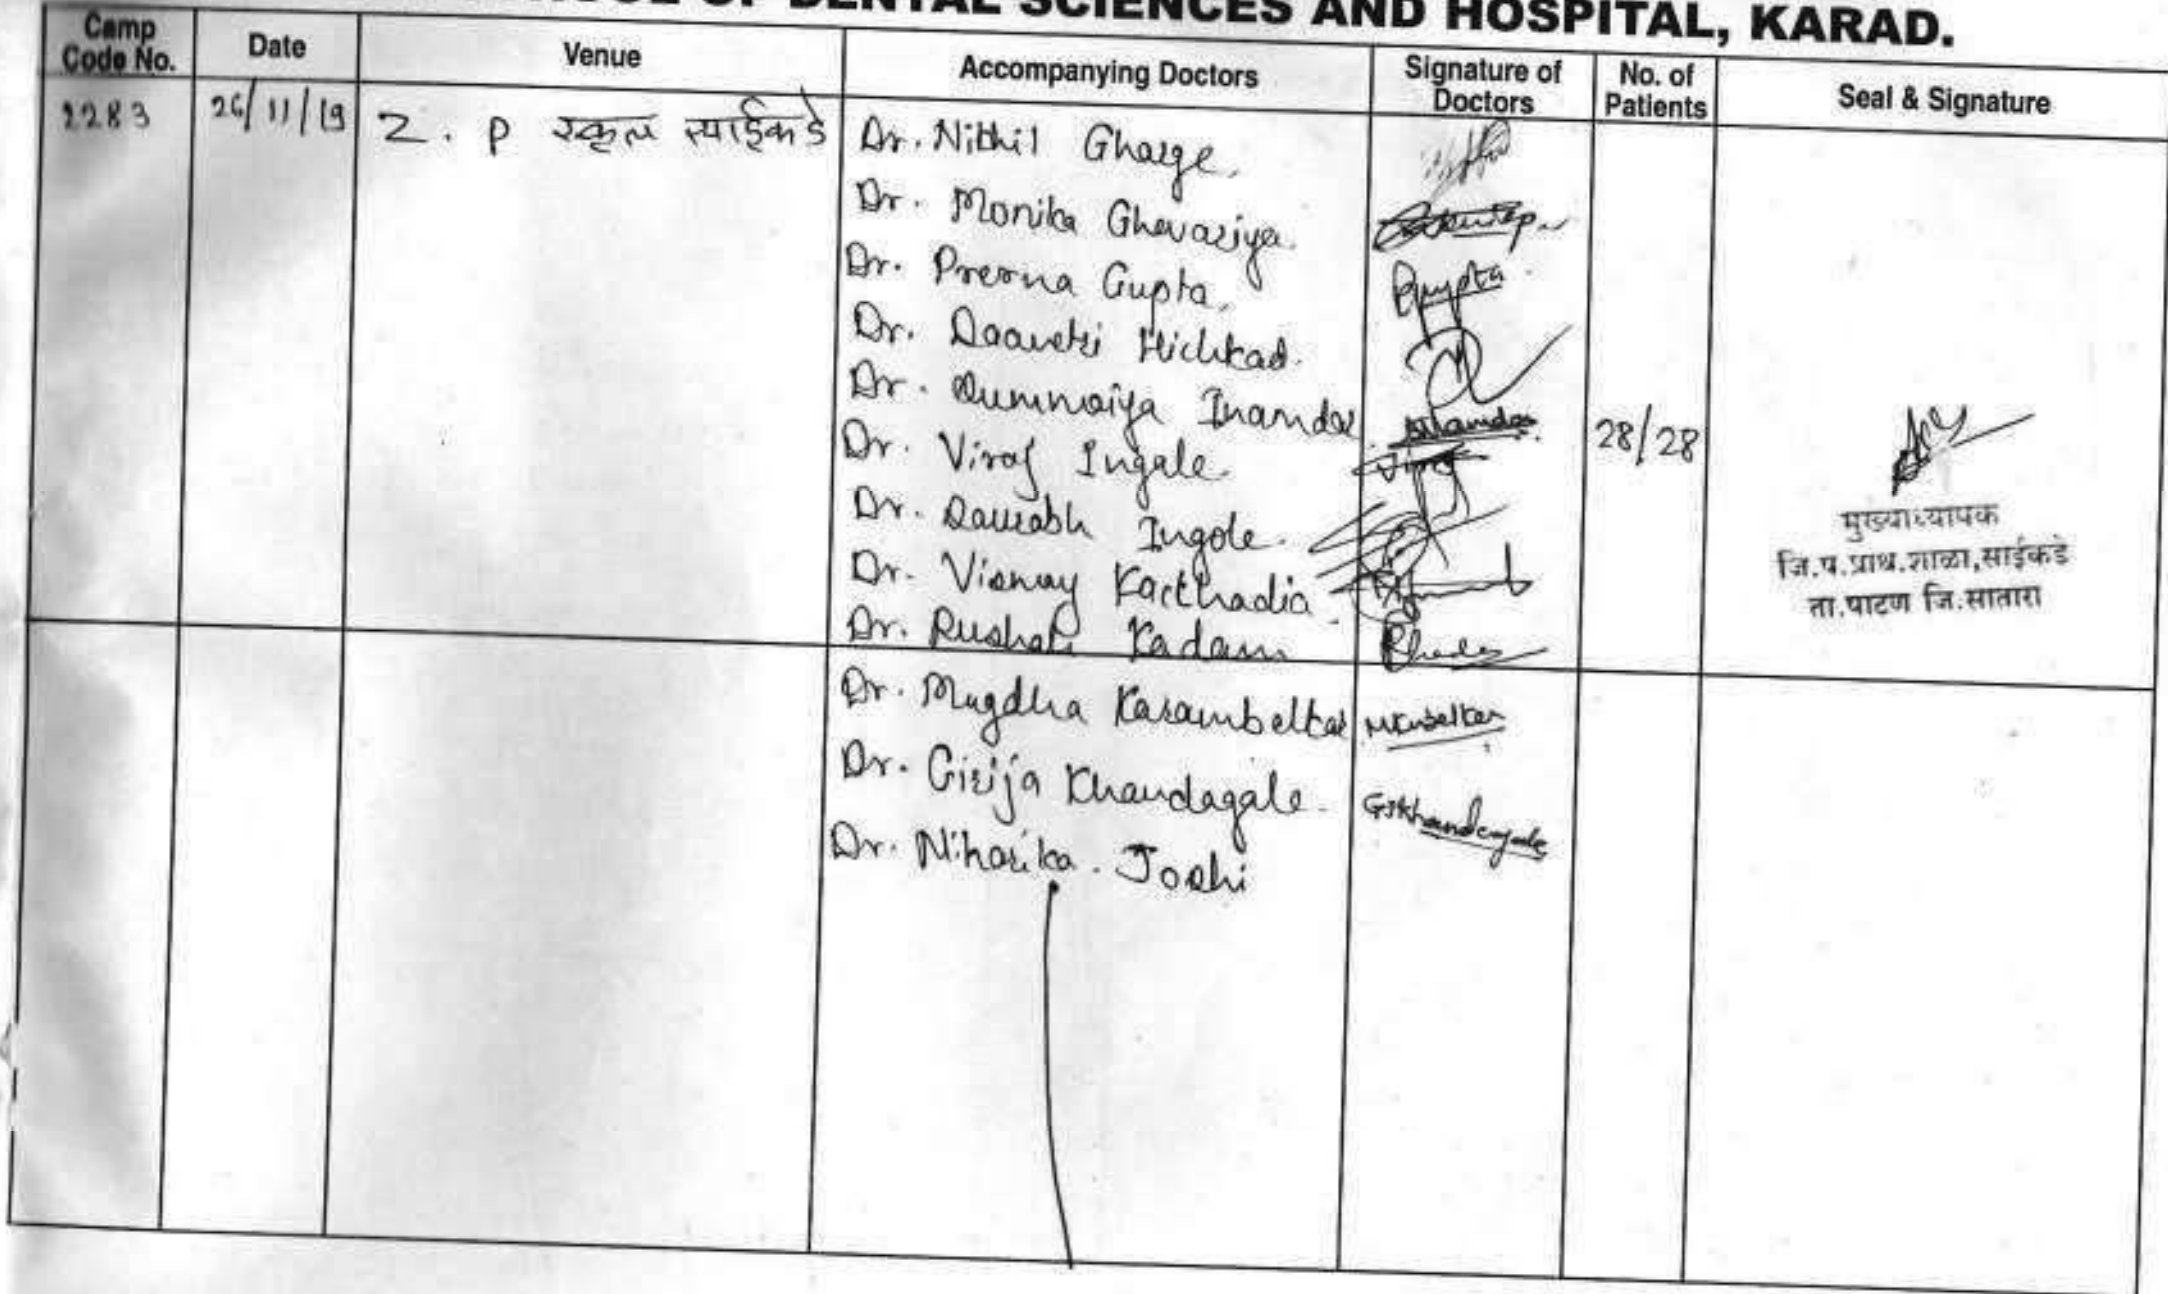 OF DENTAL SCIENCES AND HOSPITAL, KARAD.
Camp Code No. Date Venue Accompanying Doctors Signature of Doctors No. of Patients Seal & Signature
2283 26/11/19 Z. P स्कूल साईकडे Dr. Nithil Gharge.
Dr. Monika Ghevariya.
Dr. Prerna Gupta. Pgupta
Dr. Hichkad.
Dr. Summaiya Inamdar Inamdar
Dr. Viraj Ingale. 28/28
Dr. Saurabh Ingole.
Dr. Visnay Karthadia.
Dr. Rushali Kadam
मुख्याध्यापक
जि.प.प्राथ.शाळा,साईकडे
ता.पाटण जि.सातारा
Dr. Mugdha Karambelkar
Dr. Girija Khandagale. GSKhandagale
Dr. Niharika. Joshi